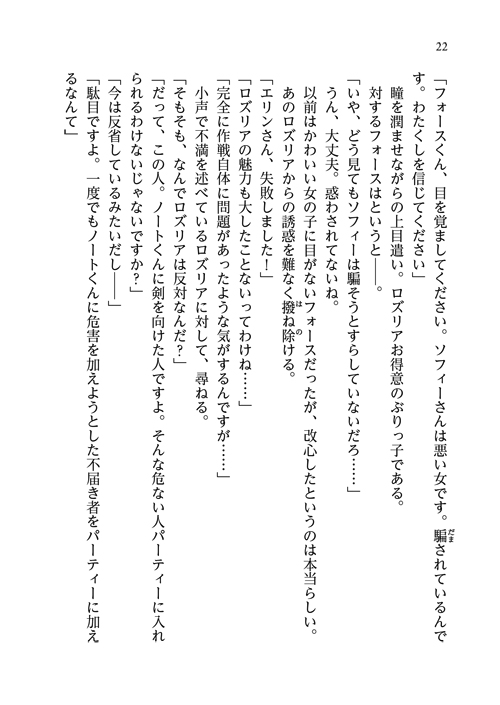 22
「フォースくん、目を覚ましてください。ソフィーさんは悪い女です。騙されているんで
す。わたくしを信じてください」
瞳を潤ませながらの上目遣い。ロズリアお得意のぶりっ子である。
対するフォースはというと――。
「いや、どう見てもソフィーは騙そうとすらしていないだろ……」
うん、大丈夫。惑わされてないね。
以前はかわいい女の子に目がないフォースだったが、改心したというのは本当らしい。
あのロズリアからの誘惑を難なく撥ね除ける。
「エリンさん、失敗しました!」
「ロズリアの魅力も大したことないってわけね……」
「完全に作戦自体に問題があったような気がするんですが……」
小声で不満を述べているロズリアに対して、尋ねる。
「そもそも、なんでロズリアは反対なんだ?」
「だって、この人。ノートくんに剣を向けた人ですよ。そんな危ない人パーティーに入れ
られるわけないじゃないですか?」
「今は反省しているみたいだし――」
「駄目ですよ。一度でもノートくんに危害を加えようとした不届き者をパーティーに加え
るなんて」